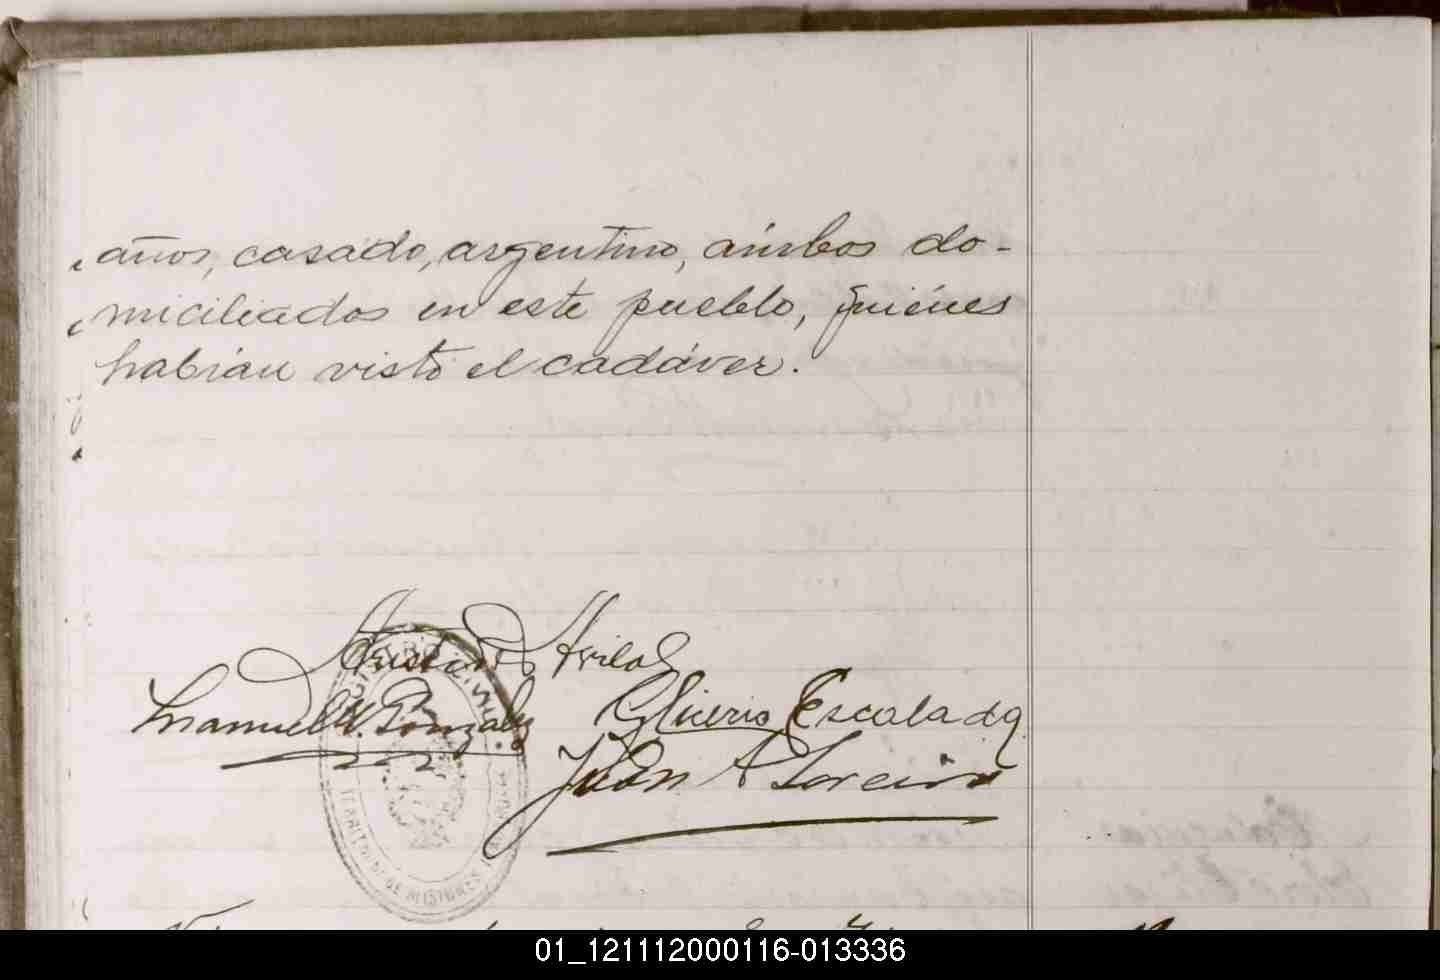 años, casado, argentino, ámbos do-
miciliados en este pueblo, quiénes
habían visto el cadáver.
Avila
Manuel V. Gonzalez Glicerio Escalada
Juan A Loreiro
REGISTRO CIVIL
TERRITORIO DE MISIONES
01_121112000116-013336